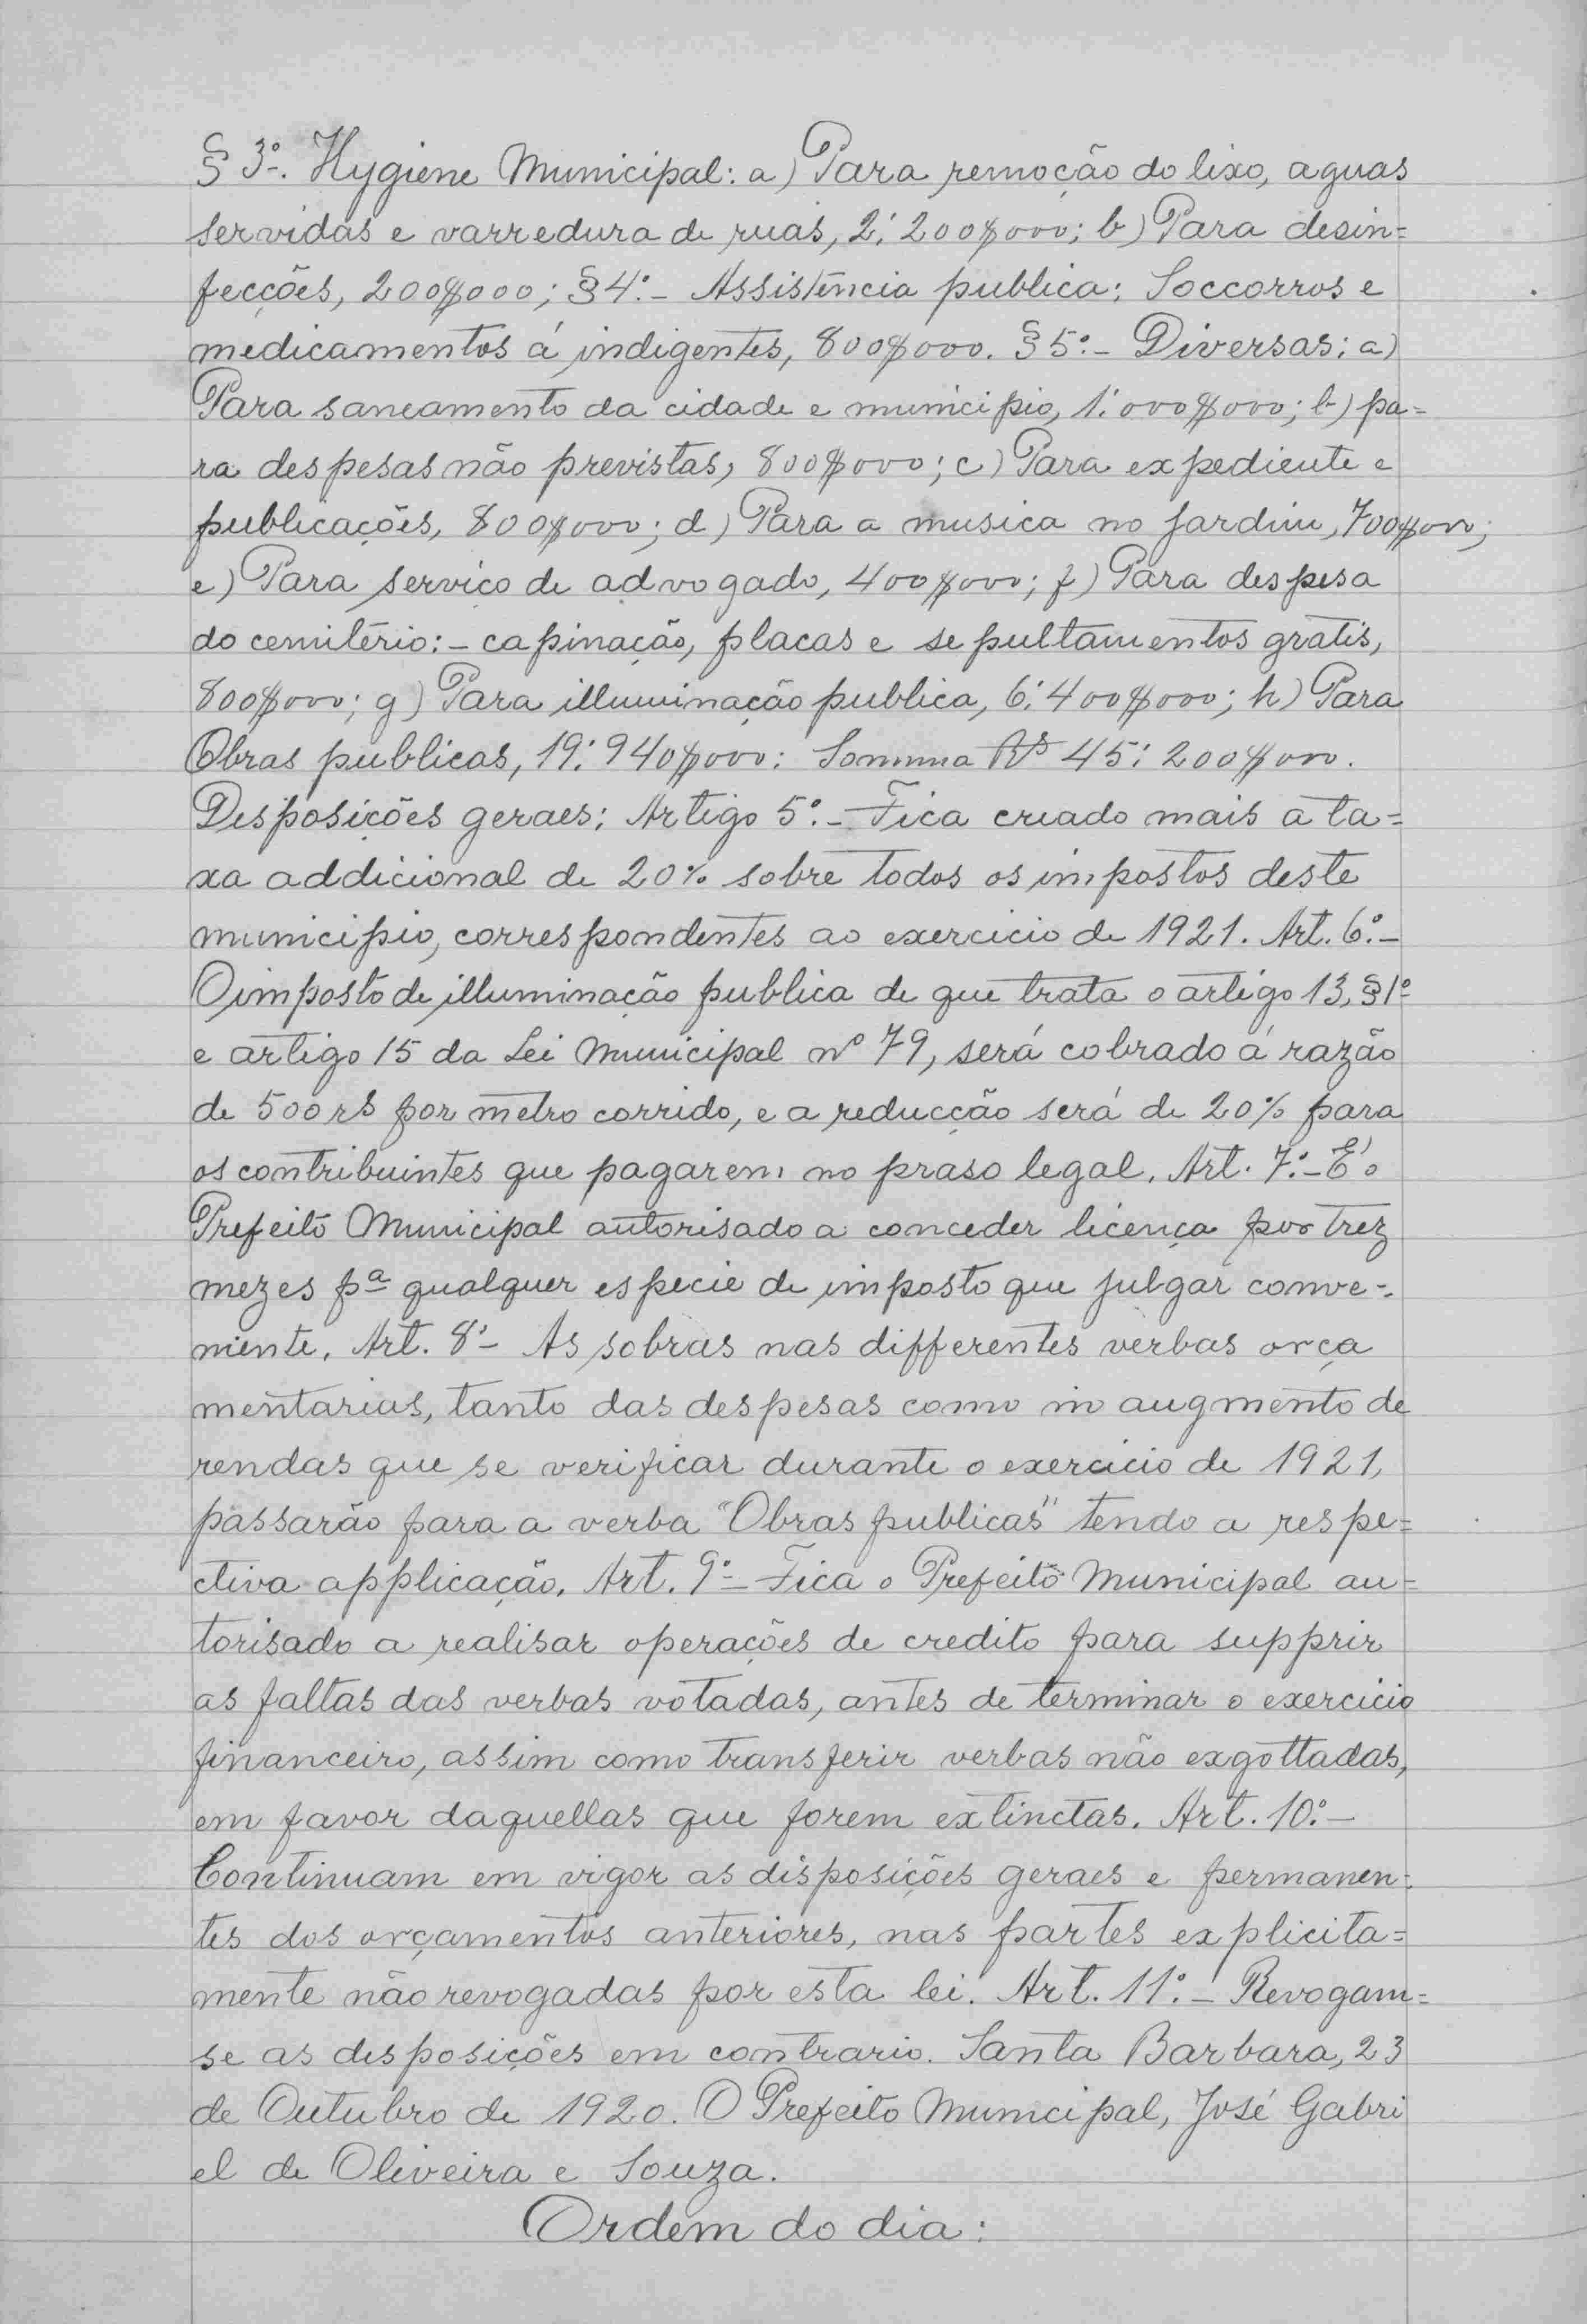 § 3º. Hygiene Municipal: a) Para remoção do lixo, aguas
servidas e varredura de ruas, 2:200$000; b) Para desin=
fecções, 200$000; § 4º.- Assistência publica: Soccorros e
medicamentos á indigentes, 800$000. § 5º.- Diversas: a)
Para saneamento da cidade e municipio, 1:000$000; b) pa=
ra despesas não previstas, 800$000; c) Para expediente e
publicações, 800$000; d) Para a musica no jardim, 700$000;
e) Para serviço de advogado, 400$000; f) Para despesa
do cemitério:- capinação, placas e sepultamentos gratis,
800$000; g) Para illuminação publica, 6:400$000; h) Para
Obras publicas, 19:940$000: Somma Rs 45:200$000.
Disposições geraes: Artigo 5º.- Fica creado mais a ta=
xa addicional de 20% sobre todos os impostos deste
municipio, correspondentes ao exercicio de 1921. Art. 6º.-
O imposto de illuminação publica de que trata o artigo 13, § 1º
e artigo 15 da Lei Municipal nº 79, será cobrado á razão
de 500 rs por metro corrido, e a reducção será de 20% para
os contribuintes que pagarem no praso legal. Art. 7º.- É o
Prefeito Municipal autorisado a conceder licença por trez
mezes pª qualquer especie de imposto que julgar conve=
niente. Art. 8º- As sobras nas differentes verbas orça
mentarias, tanto das despesas como no augmento de
rendas que se verificar durante o exercicio de 1921,
passarão para a verba "Obras publicas" tendo a respe=
ctiva applicação. Art. 9º- Fica o Prefeito Municipal au=
torisado a realisar operações de credito para supprir
as faltas das verbas votadas, antes de terminar o exercicio
financeiro, assim como transferir verbas não exgottadas,
em favor daquellas que forem extinctas. Art. 10º.-
Continuam em vigor as disposições geraes e permanen=
tes dos orçamentos anteriores, nas partes explicita=
mente não revogadas por esta lei. Art. 11º.- Revogam=
se as disposições em contrario. Santa Barbara, 23
de Outubro de 1920. O Prefeito Municipal, José Gabri
el de Oliveira e Souza.
Ordem do dia: